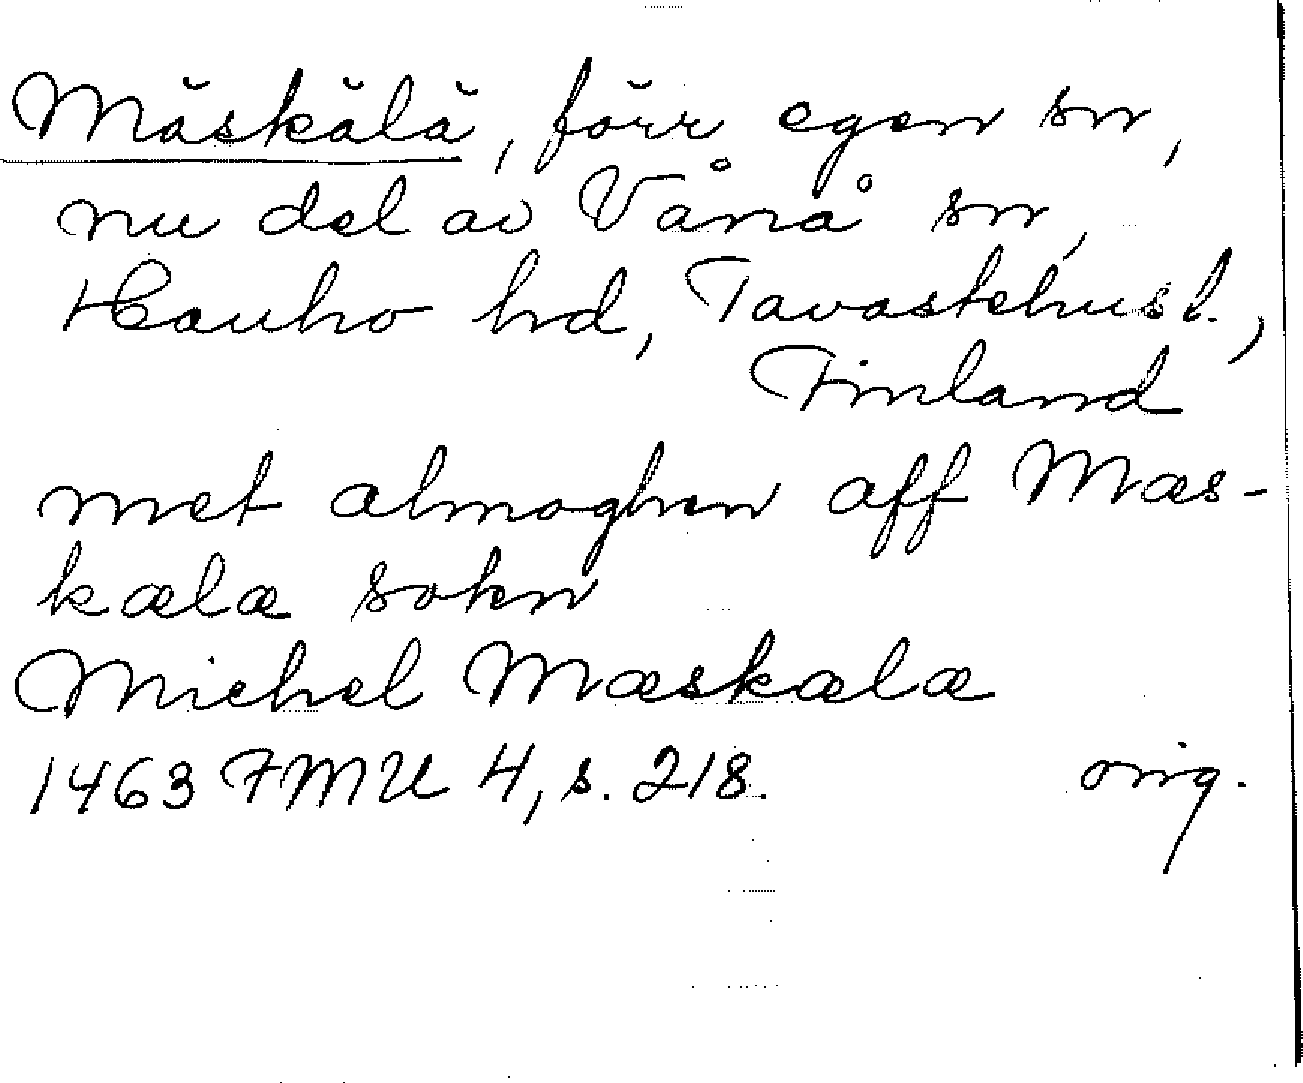 Mäskälä, förr egen sn,
nu del av Vånå sn,
Hauho hd, Tavastehus l.,
Finland
met almoghen aff Mæs-
kælæ sokn
Michel Mæskælæ
1463 FMU 4, s. 218. orig.